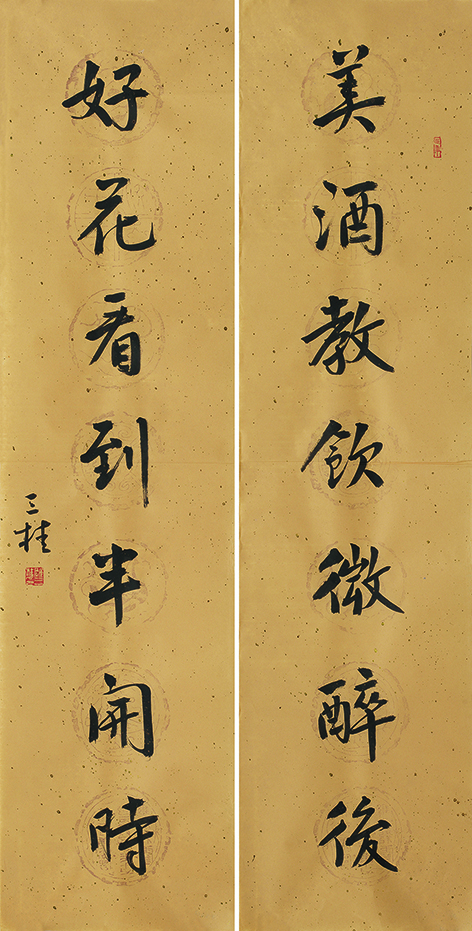 美酒教飲微醉後
好花看到半開時
三桂